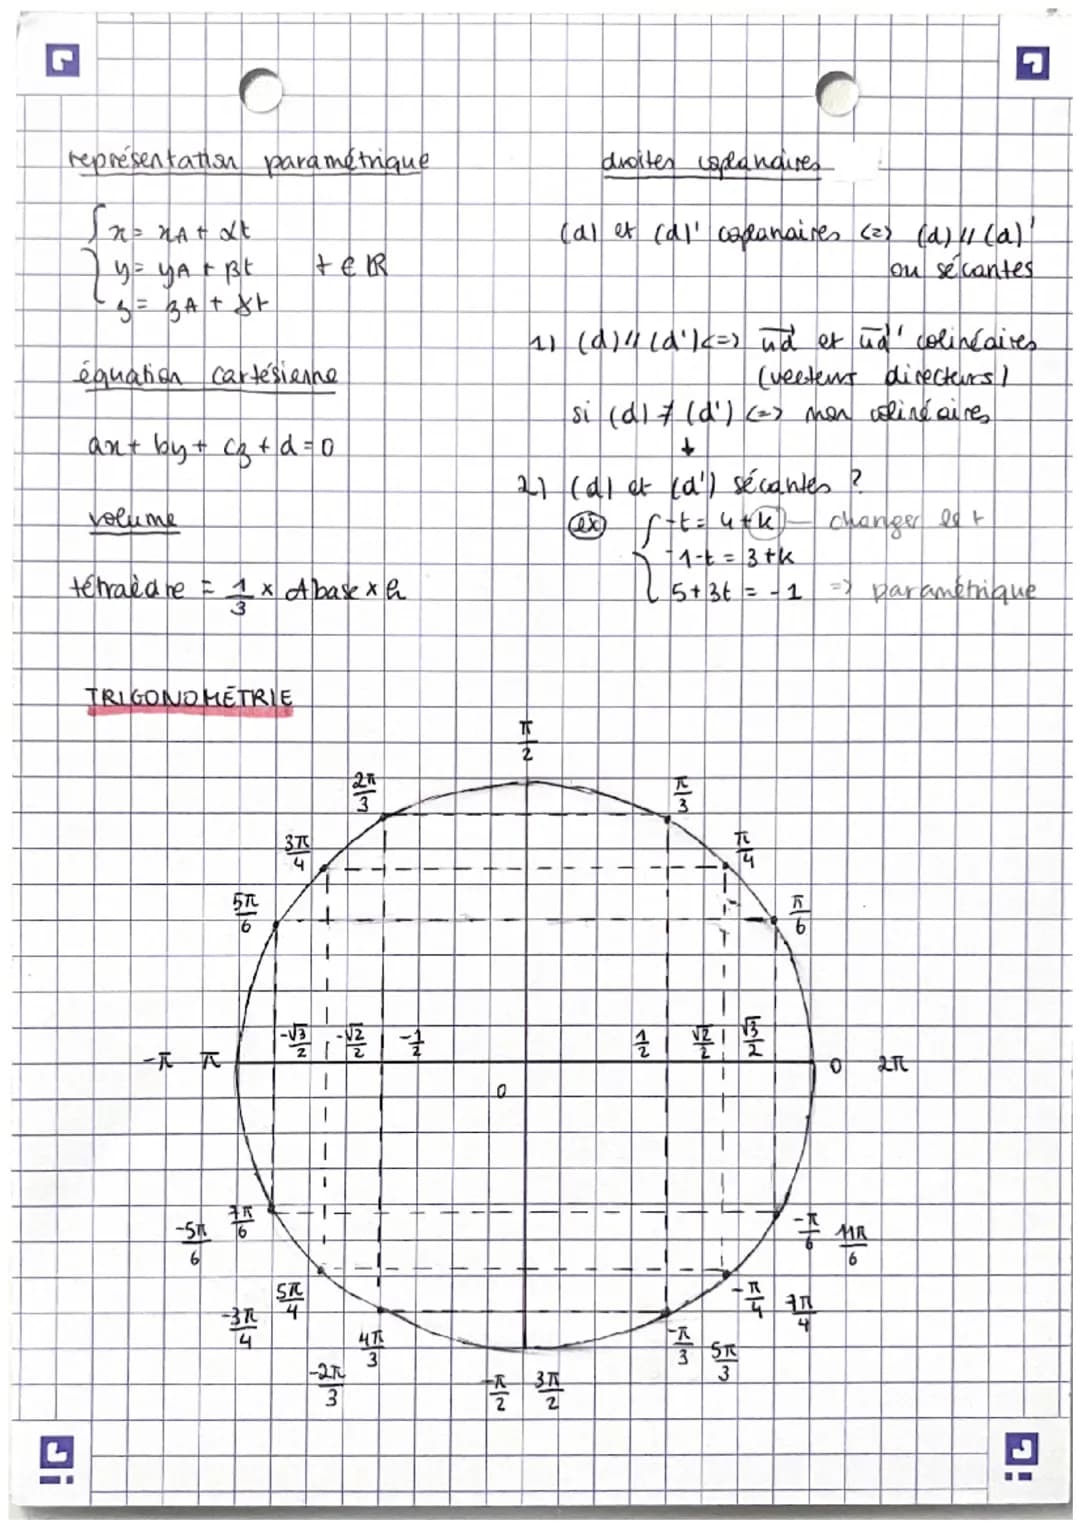 représentation paramétrique
{ x = xA + αt
y = yA + βt t ∈ ℝ
z = zA + γt
équation cartésienne
ax + by + cz + d = 0
volume
tétraèdre = 1/3 × Abase × h
droites coplanaires
(d) et (d)' coplanaires <=> (d) // (d)'
ou sécantes
1) (d) // (d') <=> ud et ud' colinéaires
(vecteurs directeurs)
si (d) ∦ (d') <=> non colinéaires
↓
2) (d) et (d') sécantes ?
ex { -t = 4 + k — changer le t
-1-t = 3 + k
5 + 3t = -1 => paramétrique
TRIGONOMÉTRIE
π/2
2π/3 π/3
3π/4 π/4
5π/6 π/6
-√3/2 -√2/2 -1/2 1/2 √2/2 √3/2
-π π 0 2π
0
-5π/6 7π/6 -π/6 11π/6
-3π/4 5π/4 -π/4 7π/4
-2π/3 4π/3 -π/3 5π/3
-π/2 3π/2